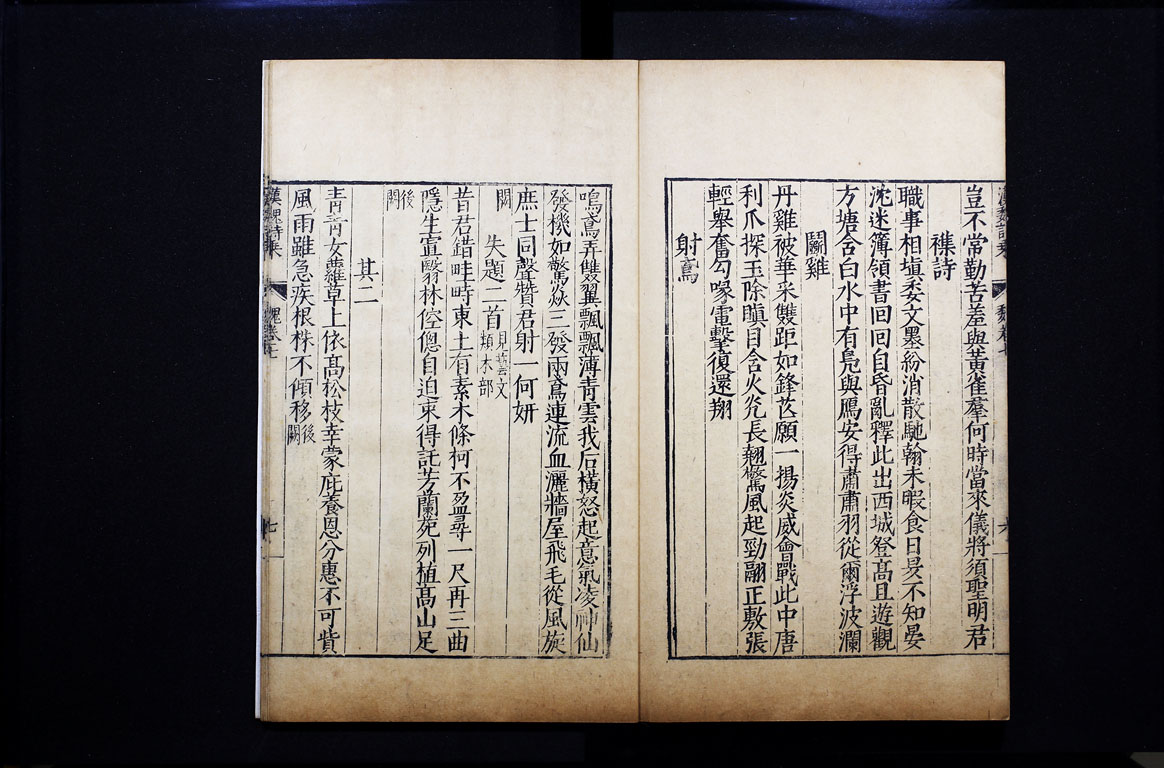 豈不常勤苦羞與黃雀羣何時當來儀將須聖明君
襍詩
職事相塡委文墨紛消散馳翰未暇食日昃不知晏
沈迷簿領書回回自昏亂釋此出西城登高且遊觀
方塘含白水中有鳧與鴈安得肅肅羽從爾浮波瀾
鬭雞
丹雞被華采雙距如鋒芒願一揚炎威會戰此中唐
利爪探玉除瞋目含火炎長翹驚風起勁翮正敷張
輕舉奮勾喙電擊復還翔
射鳶
鳴鳶弄雙翼飄飄薄青雲我后橫怒起意氣凌神仙
發機如驚焱三發兩鳶連流血灑牆屋飛毛從風旋
庶士同聲贊君射一何妍
闕
失題二首
見藝文
類木部
昔君錯畦時東土有素木條柯不盈尋一尺再三曲
隱生窴翳林倥傯自迫束得託芳蘭苑列植高山足
後
闕
其二
青青女蘿草上依高松枝幸蒙庇養恩分惠不可貲
風雨雖急疾根株不傾移
後
闕
漢魏詩乘
魏卷七
七